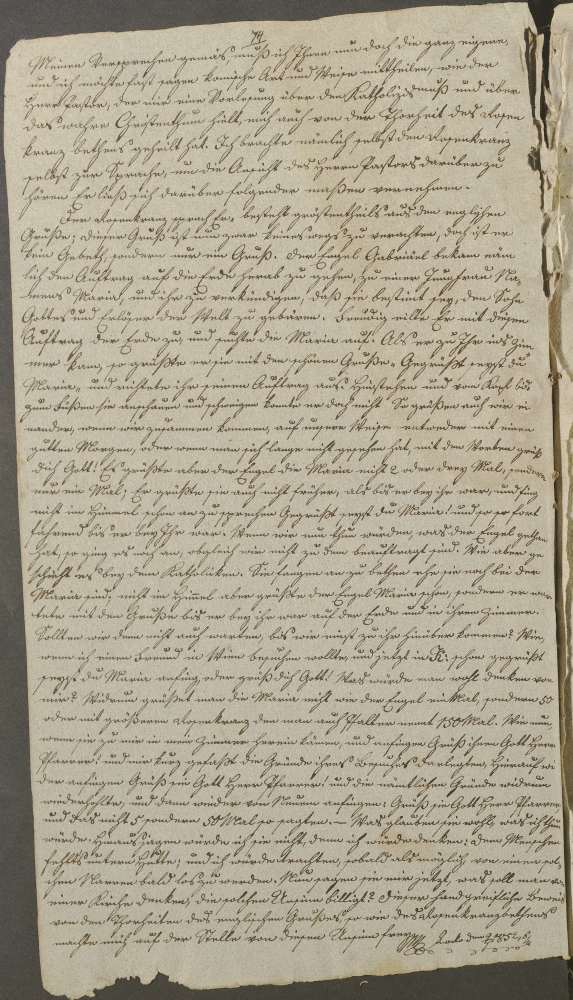 74
Meinen Versprechen gemäs muß ich Ihnen nun doch die ganz eigene,
und ich möchte fast sagen komische Art und Weise mittheilen, wie der
Herr Pastor, der mir eine Vorlesung über den Katholizismuß und über
das wahre Christenthum hält, mich auch von der Thorheit des Rosen
kranz bethens geheilt hat. Ich brachte nämlich selbst den Rosenkranz
selbst zur Sprache, um die Ansicht des Herrn Pastors darüber zu
hören. Er ließ sich darüber folgender maßen vernehmen.
Der Rosenkranz sprach Er, besteht gröstentheils aus den englischen
Gruße; dieser Gruß ist nun zwar keineswegs zu verachten, doch ist er
kein Gebeth, sondern nur ein Gruß. Der Engel Gabriäel bekam näm
lich den Auftrag auf die Erde herab zu gehen, zu einer Jungfrau Na
mens Maria, und ihr zu verkündigen, daß sie bestimt sey, den Sohn
Gottes und Erlöser der Welt zu gebären. Freudig eilte Er mit diesen
Auftrag der Erde zu, und suchte die Maria auf. Als er zu Ihr ins Zim
mer kam, so grüßte er sie mit den schönen Gruße „Gegrüßt seyst du
Maria„ und richtete ihr seinen Auftrag aus. Hinstehen und von Kopf bis
zum Füßen sie anschauen und schweigen konnte er doch nicht. So grüßen auch wir ei
nander, wenn wir zusammen kommen, auf unsere Weise entweder mit einen
gutten Morgen, oder wenn man sich lange nicht gesehen hat, mit den Worten grüß
dich Gott! Es grüßte aber der Engel die Maria nicht 2 oder drey Mal, sondern
nur ein Mal; Er grüßte sie auch nicht früher, als bis er bey ihr war, und fing
nicht im Himmel schon an zu sprechen Gegrüßt seyst du Maria! und so er fort
fahrend bis er bey Ihr war. Wenn wir nun thun würden, was der Engel gethan
hat, so ging es noch an, obgleich wir nicht zu dem beauftragt sind. Wie aber ge
schieht es bey dem Katholiken. Sie fangen an zu bethen ehe sie noch bei der
Maria sind, nicht im Himel aber grüßte der Engel Maria schon, sondern er war
tete mit den Gruße bis er bey ihr war auf der Erde und in ihren Zimmer.
Sollten wir denn nicht auch warten, bis wir einst zu ihr hinüber kommen? Wie,
wenn ich einen Freund in Wien besuchen wollte, und jetzt in schon gegrüßt
seyst du Maria anfing, oder grüß dich Gott! Was würde man wohl denken von
mir? Widrum grüßet man die Maria nicht wie der Engel ein Mal, sondern 50
oder mit größeren Rosenkranz den man auch Psalter nennt 150 Mal. Wie nun,
wenn sie zu mir in mein Zimmer herein kämen, und anfingen Grüß ihnen Gott Herr
Pfarrer! und mir kurz gefaßt die Gründe ihres Besuches darlegten, hierauf wi
der anfingen Grüß sie Gott Herr Pfarrer! und die nämtlichen Gründe widrum
wiederhohlten, und dann wieder von Neuem anfingen: Grüß sie Gott Herr Pfarrer
und das nicht 5 sondern 50 Mal so sagten. — Was glauben sie wohl, was ich thun
würde. Hinaus jagen würde ich sie nicht, denn ich würde denken: dem Menschen
fehlts unterm Hutte, und ich würde trachten, sobald als möglich von einen sol
chen Narren bald los zu werden. Nun sagen sie mir jetzt, was soll man von
einer Kirche denken, die solchen Unsinn billigt? Dieser handgreifliche Beweis
von den Thorheiten des englischen Grußes, so wie des Rosenkranzbethens
machte mich auf der Stelle von diesen Unsinn frey.